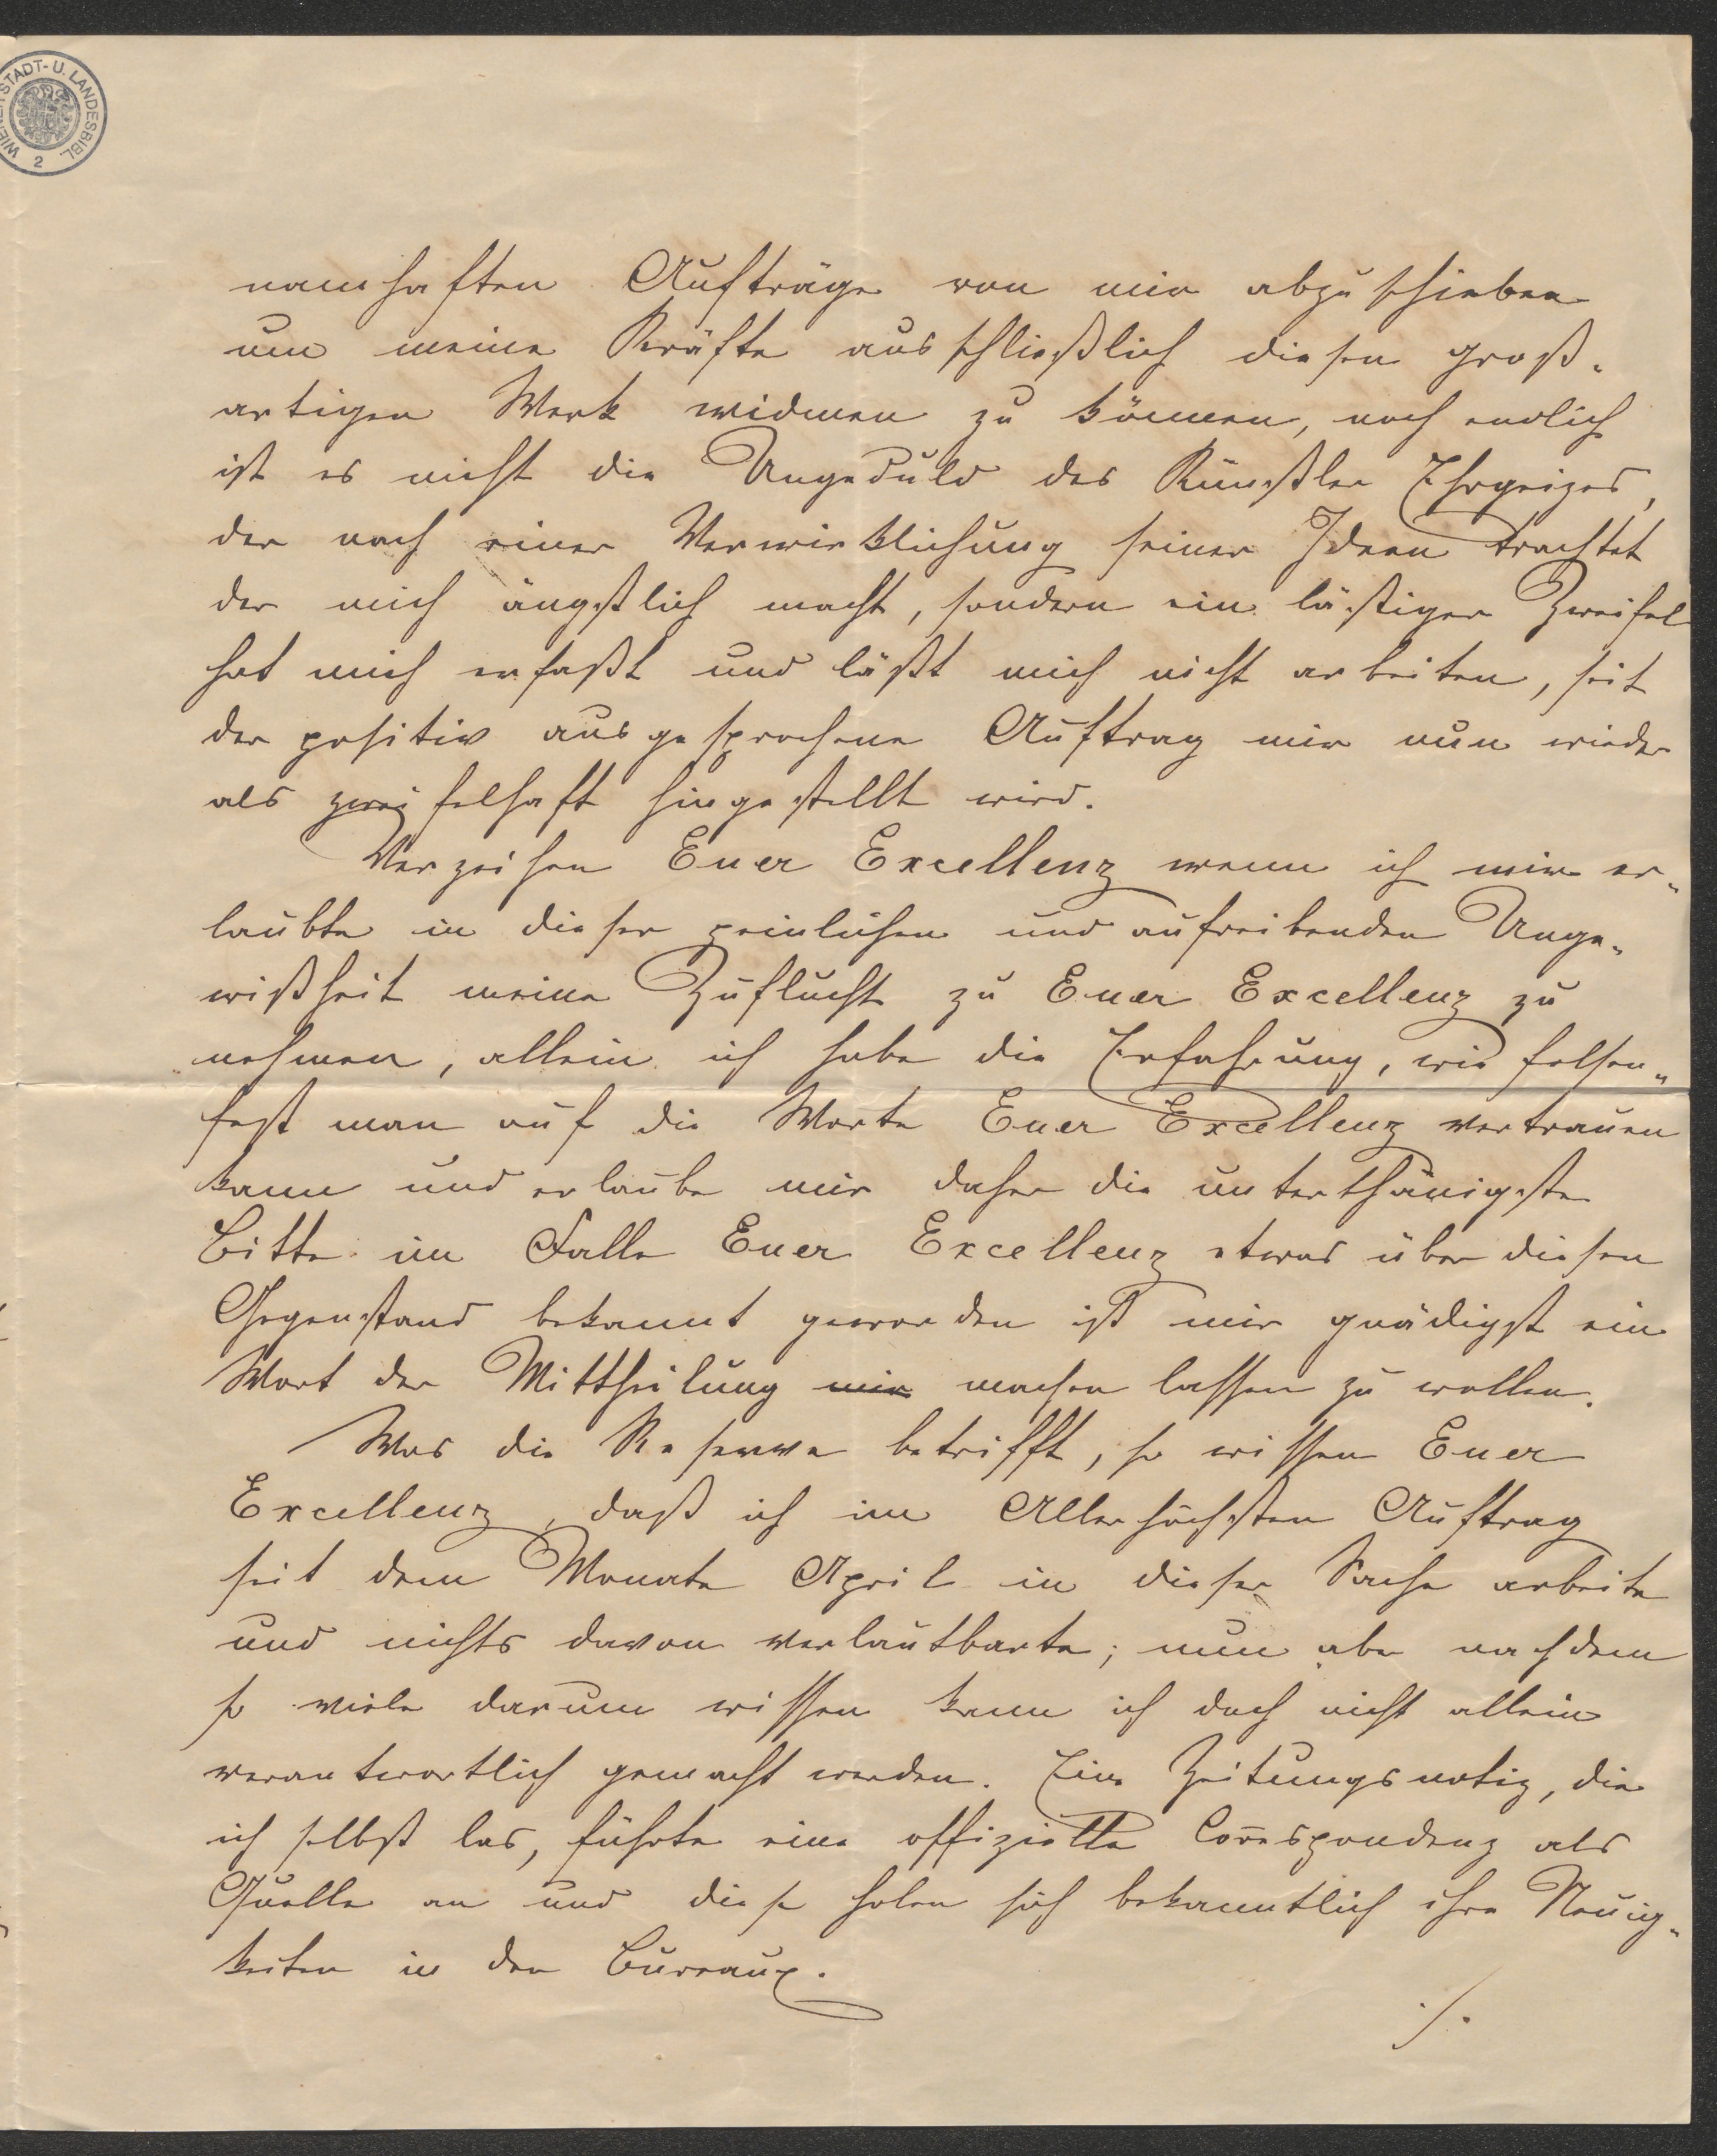 WIENER STADT- U. LANDESBIBL. 2
namhaften Aufträge von mir abzuschieben
um meine Kräfte ausschließlich diesen groß-
artigen Werk widmen zu können, noch endlich
ist es nicht die Ungeduld des Künstler Ehrgeizes,
der nach einer Verwirklichung seiner Ideen trachtet
der mich ängstlich macht, sondern ein lästiger Zweifel
hat mich erfaßt und läßt mich nicht arbeiten, seit
der positiv ausgesprochene Auftrag mir nun wieder
als zweifelhaft hingestellt wird.
Verzeihen Euer Excellenz wenn ich mir er-
laubte in dieser peinlichen und aufreibenden Unge-
wißheit meine Zuflucht zu Euer Excellenz zu
nehmen, allein ich habe die Erfahrung, wie felsen-
fest man auf die Worte Euer Excellenz vertrauen
kann und erlaube mir daher die unterthänigste
Bitte im Falle Euer Excellenz etwas über diesen
Gegenstand bekannt geworden ist mir gnädigst ein
Wort der Mittheilung mir machen lassen zu wollen.
Was die Reserve betrifft, so wissen Euer
Excellenz, daß ich im Allerhöchsten Auftrag
seit dem Monate April in dieser Sache arbeite
und nichts davon verlautbarte; nun aber nachdem
so viele darum wissen kann ich doch nicht allein
verantwortlich gemacht werden. Eine Zeitungsnotiz, die
ich selbst las, führte eine offizielle Correspondenz als
Quelle an und diese holen sich bekanntlich ihre Neuig-
keiten in den Bureaux.
./.